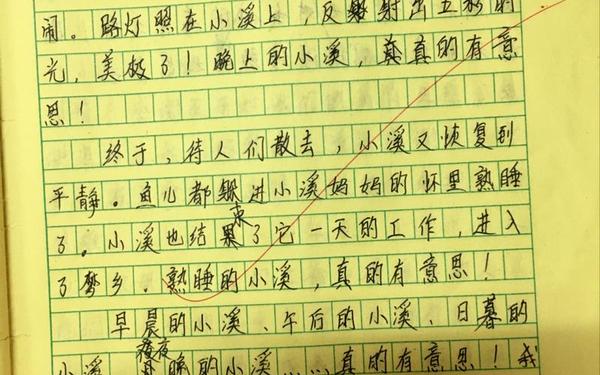 闹。路灯照在小溪上，反射出五彩的
光，美极了！晚上的小溪，真真的有意
思！
终于，待人们散去，小溪又恢复到
平静。鱼儿都躲进小溪妈妈的怀里熟睡
了。小溪也结束了它一天的工作，进入
了梦乡。熟睡的小溪，真的有意思！
早晨的小溪、午后的小溪、日暮的
小溪、夜晚的小溪……真的有意思！我